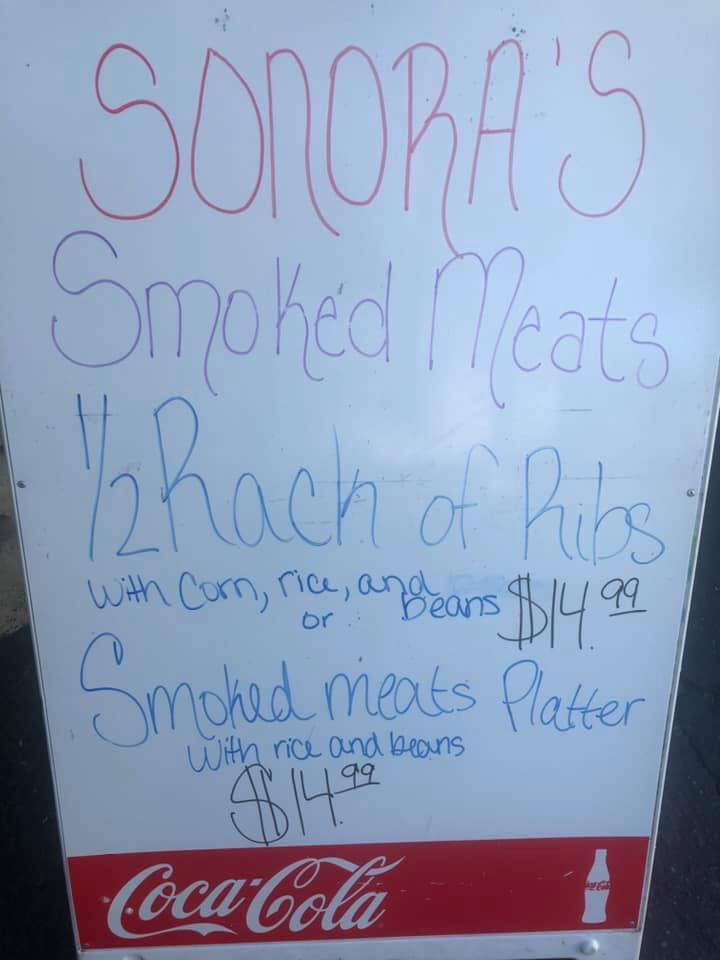 SONORA'S
Smoked Meats
1/2 Rack of Ribs
with Corn, rice, and beans $14.99
or
Smoked meats Platter
with rice and beans
$14.99
Coca-Cola